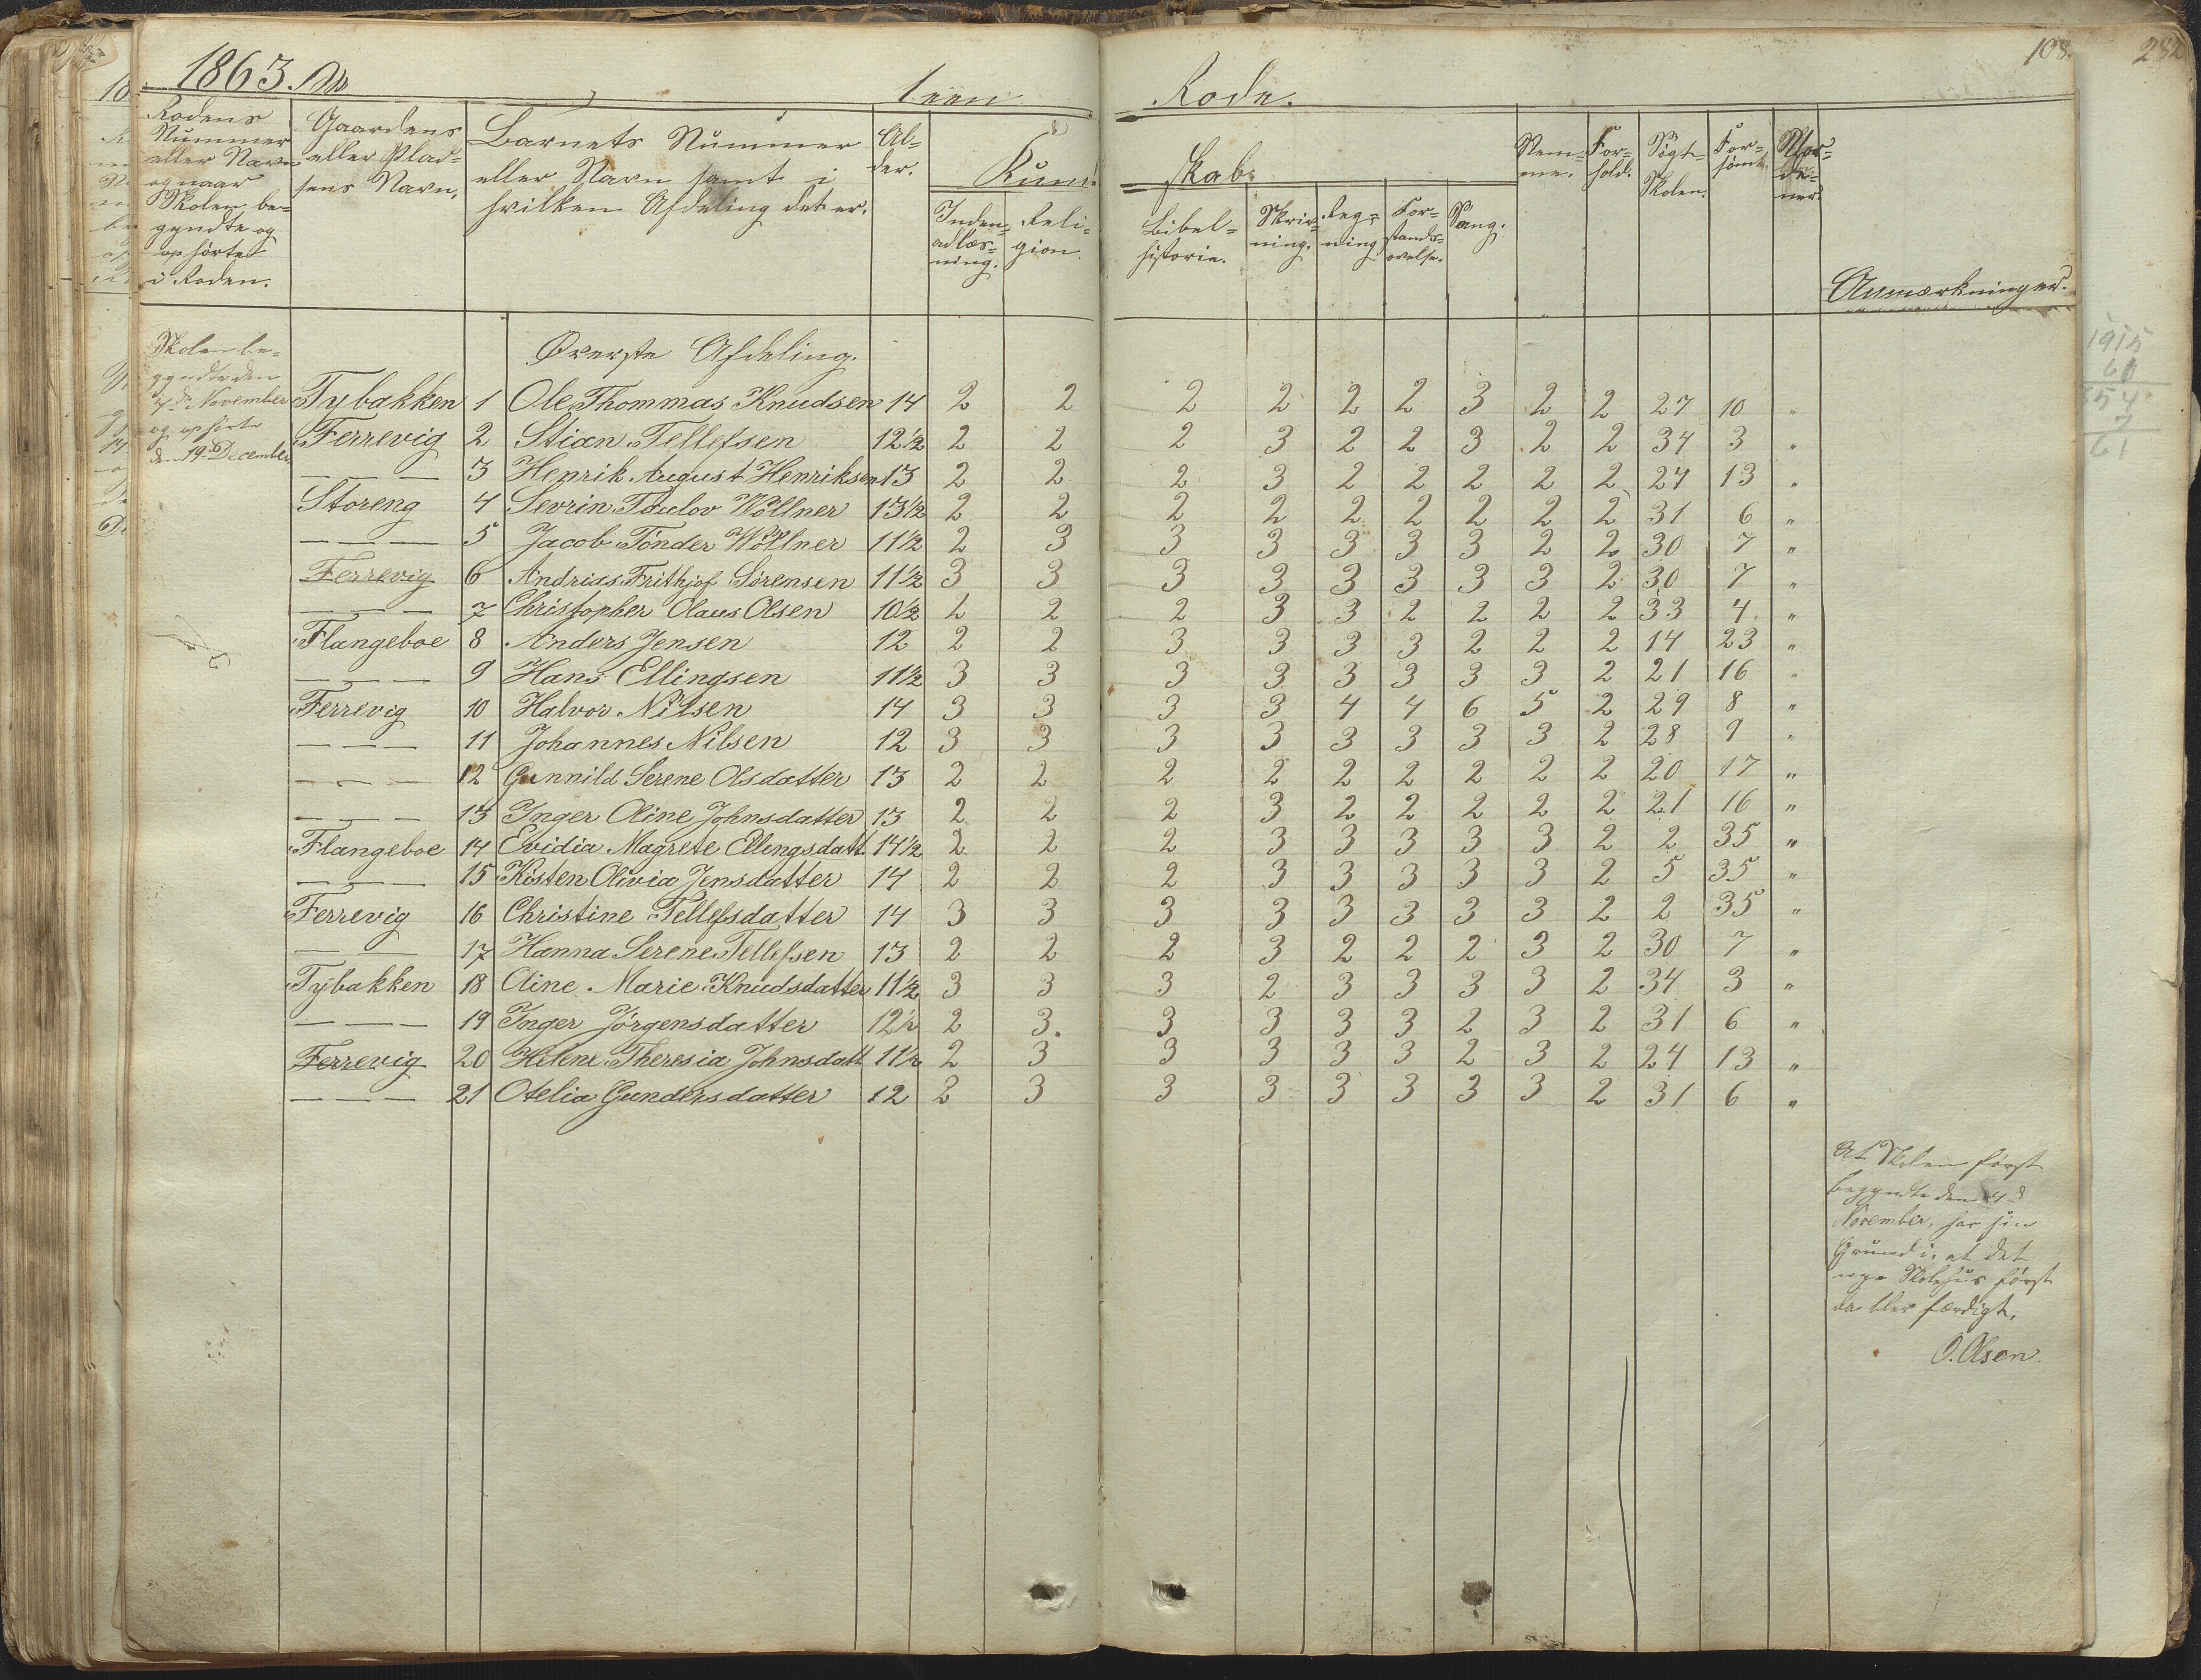 1863.
1een Rode.
108.
282
Rodens Nummer eller Navn og naar Skolen begyndte og ophørte i Roden.
Gaardens eller Pladsens Navn.
Barnets Nummer eller Navn samt i hvilken Afdeling det er.
Alder.
Kundskab.
Indenadlæsning.
Religion.
Bibelhistorie.
Skrivning.
Regning
Forstandsøvelse.
Sang.
Nemme.
Forhold.
Søgt Skolen.
Forsømt
Anmærkninger.
Skolen be-
gyndte den
4de November
og ophørte
den 19de December
Øverste Afdeling.
Tybakken 1 Ole Thommas Knudsen 14 2 2 2 2 2 2 3 2 2 27 10 "
Ferrevig 2 Stian Tellefsen 12½ 2 2 2 3 2 2 3 2 2 34 3 "
— — — 3 Henrik August Henriksen 13 2 2 2 3 2 2 2 2 2 24 13 "
Storeng 4 Sevrin Toulov Wöllner 13½ 2 2 2 2 2 2 2 2 2 31 6 "
— — — 5 Jacob Tönder Wöllner 11½ 2 3 3 3 3 3 3 2 2 30 7 "
Ferrevig 6 Andrias Frithjof Sörensen 11½ 3 3 3 3 3 3 3 3 2 30 7 "
— — — 7 Christopher Olaus Olsen 10½ 2 2 2 3 3 2 2 2 2 33 4 "
Flangeboe 8 Anders Jensen 12 2 2 3 3 3 3 2 2 2 14 23 "
— — — 9 Hans Ellingsen 11½ 3 3 3 3 3 3 3 3 2 21 16 "
Ferrevig 10 Halvor Nilsen 14 3 3 3 3 4 4 6 5 2 29 8 "
— — — 11 Johannes Nilsen 12 3 3 3 3 3 3 3 3 2 28 9 "
— — — 12 Gunnild Serene Olsdatter 13 2 2 2 2 2 2 2 2 2 20 17 "
— — — 13 Inger Oline Johnsdatter 13 2 2 2 3 2 2 2 2 2 21 16 "
Flangeboe 14 Evidia Magrete Ellingsdatt. 14½ 2 2 2 3 3 3 3 3 2 2 35 "
— — — 15 Kisten Olivia Jensdatter 14 2 2 2 3 3 3 3 3 2 5 35 "
Ferrevig 16 Christine Tellefsdatter 14 3 3 3 3 3 3 3 3 2 2 35 "
— — 17 Hanna Serene Tellefsen 13 2 2 2 3 2 2 2 3 2 30 7 "
Tybakken 18 Oline Marie Knudsdatter 11½ 3 3 3 2 3 3 3 3 2 34 3 "
— — — 19 Inger Jörgensdatter 12½ 2 3 3 3 3 3 2 3 2 31 6 "
Ferrevig 20 Helene Theresia Johnsdatt 11½ 2 3 3 3 3 3 2 3 2 24 13 "
— — — 21 Otelia Gundersdatter 12 3 3 3 3 3 3 3 3 2 31 6 "
At Skolen først
begyndte den 4de
November, har sin
Grund i, at det
nye Skolehus først
da blev færdigt.
O. Olsen.
60
61